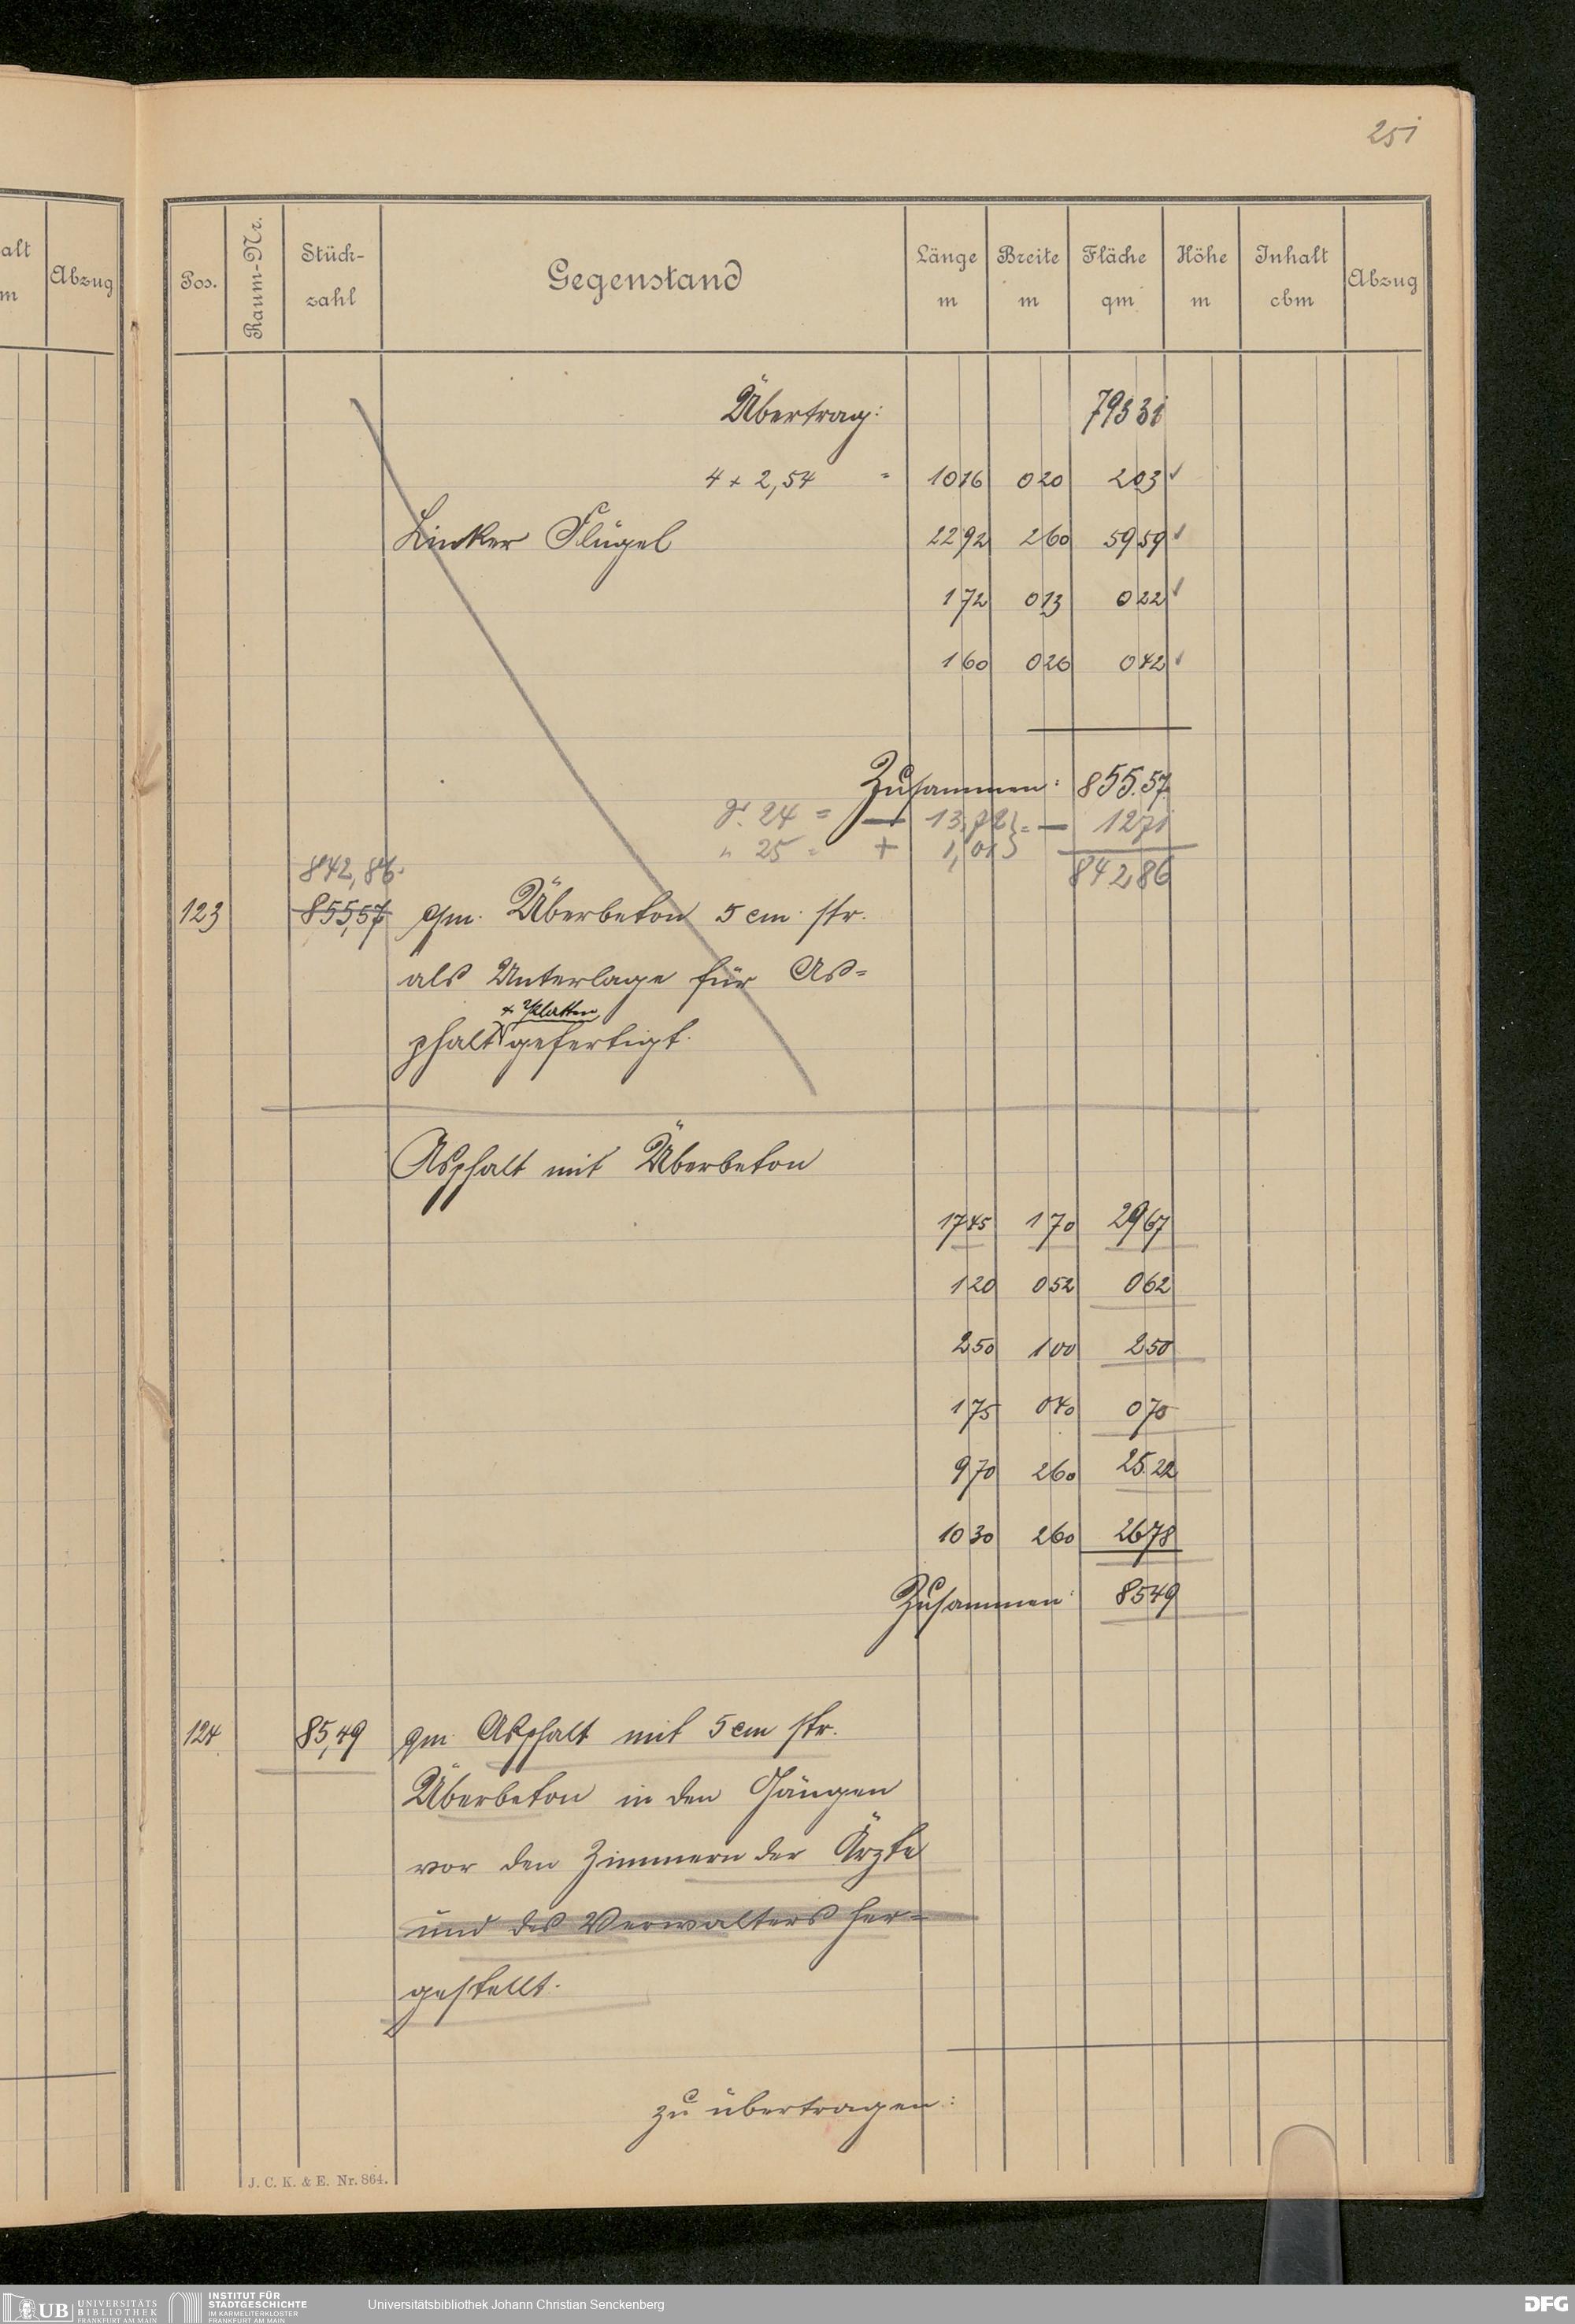 251
alt
m
Abzug
Pos. Raum-Nr. Stück-zahl Gegenstand Länge m Breite m Fläche qm Höhe m Inhalt cbm Abzug
Übertrag: 793 31
4 x 2,54 = 10 16 0 20 2 03 ✓
Linker Flügel 22 92 2 60 59 59 ✓
1 72 0 13 0 22 ✓
1 60 0 26 0 42 ✓
Zusammen: 855.57
24 = — 13,72 } = — 12 71
" 25 = + 1,01 }
842 86
842,86
123 855,57 qm. Überbeton 5 cm. str.
als Unterlage für As=
+ Platten
phalt gefertigt.
Asphalt mit Überbeton
17 45 1 70 29 67
1 20 0 52 0 62
2 50 1 00 2 50
1 75 0 40 0 70
9 70 2 60 25 22
10 30 2 60 26 78
Zusammen: 85 49
124 85,49 qm Asphalt mit 5 cm str.
Überbeton in den Gängen
vor den Zimmern der Ärzte
und des Verwalters her=
gestellt.
zu übertragen:
J. C. K. & E. Nr. 864.
UB UNIVERSITÄTS
BIBLIOTHEK
FRANKFURT AM MAIN
INSTITUT FÜR
STADTGESCHICHTE
IM KARMELITERKLOSTER
FRANKFURT AM MAIN
Universitätsbibliothek Johann Christian Senckenberg
DFG